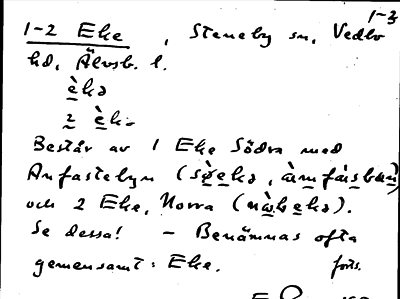 1-3
1-2 Eke, Steneby sn, Vedbo
hd, Älvsb. l.
èkə
2 èk-
Består av 1 Eke Södra med
Anfastebyn (
och 2 Eke, Norra (
Se dessa! - Benämnas ofta
gemensamt: Eke. forts.